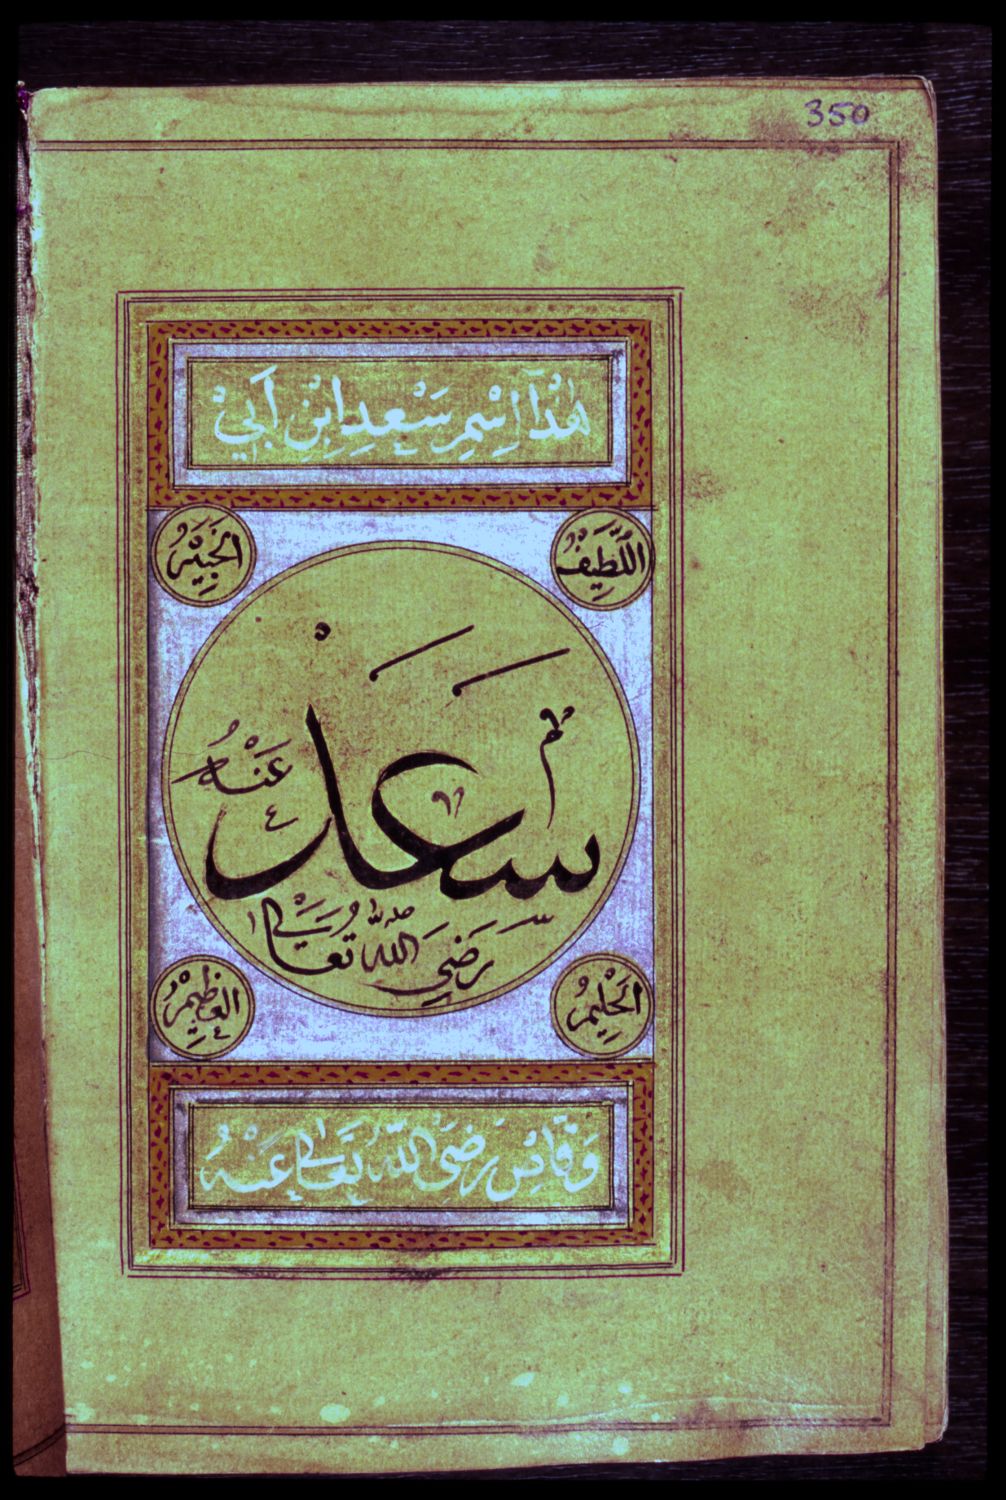 350
هٰذَآ اِسْمِ سَعْدِ ابْنِ اَبِيْ
اَللَّطِيْفُ
اَلْخَبِيْرُ
سَعَدْ
عَنْهُ
رَضِيَ اللّٰهُ تَعَالٰي
اَلْحَلِيْمُ
اَلْعَظِيْمُ
وَقَاصْ رَضِيَ اللّٰهُ تَعَالٰي عَنْهُ